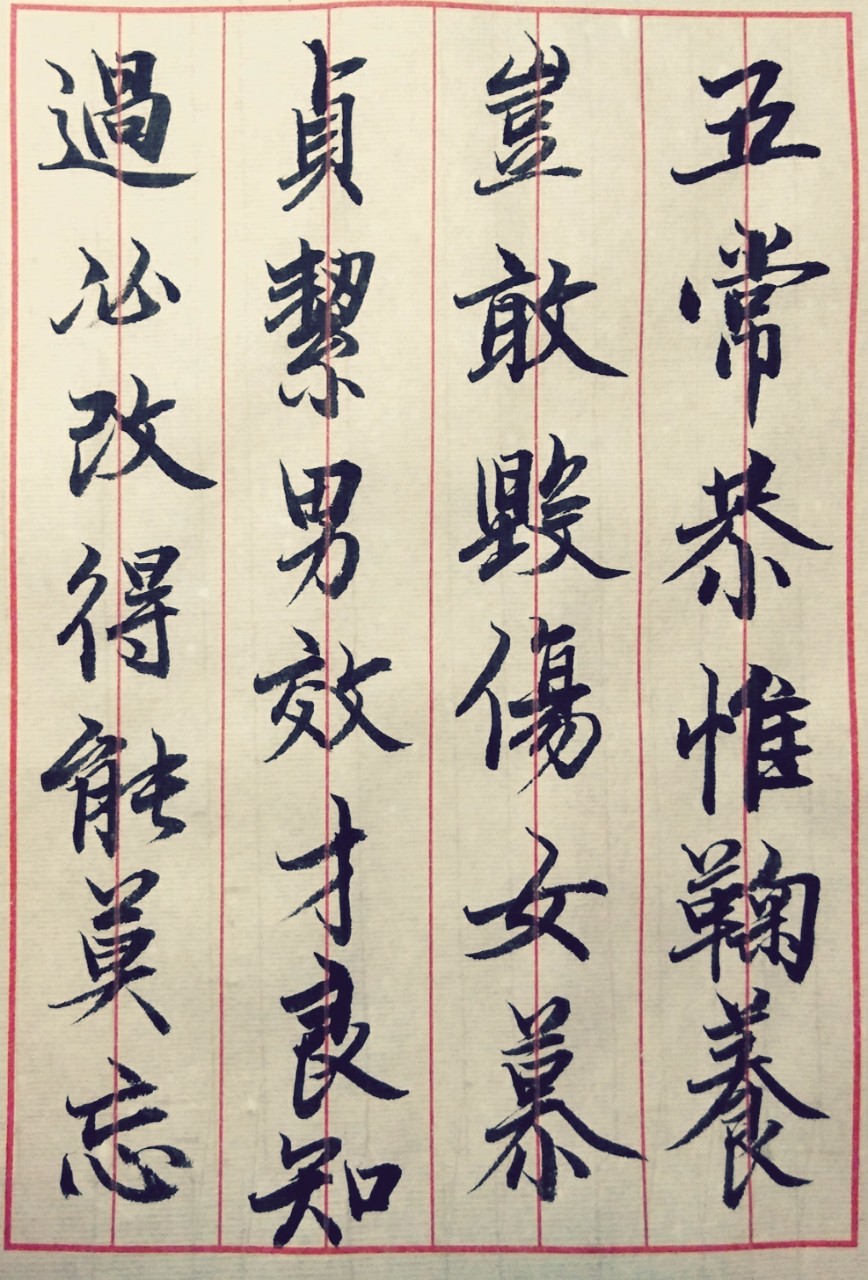 五常恭惟鞠養
豈敢毀傷女慕
貞絜男效才良知
過必改得能莫忘